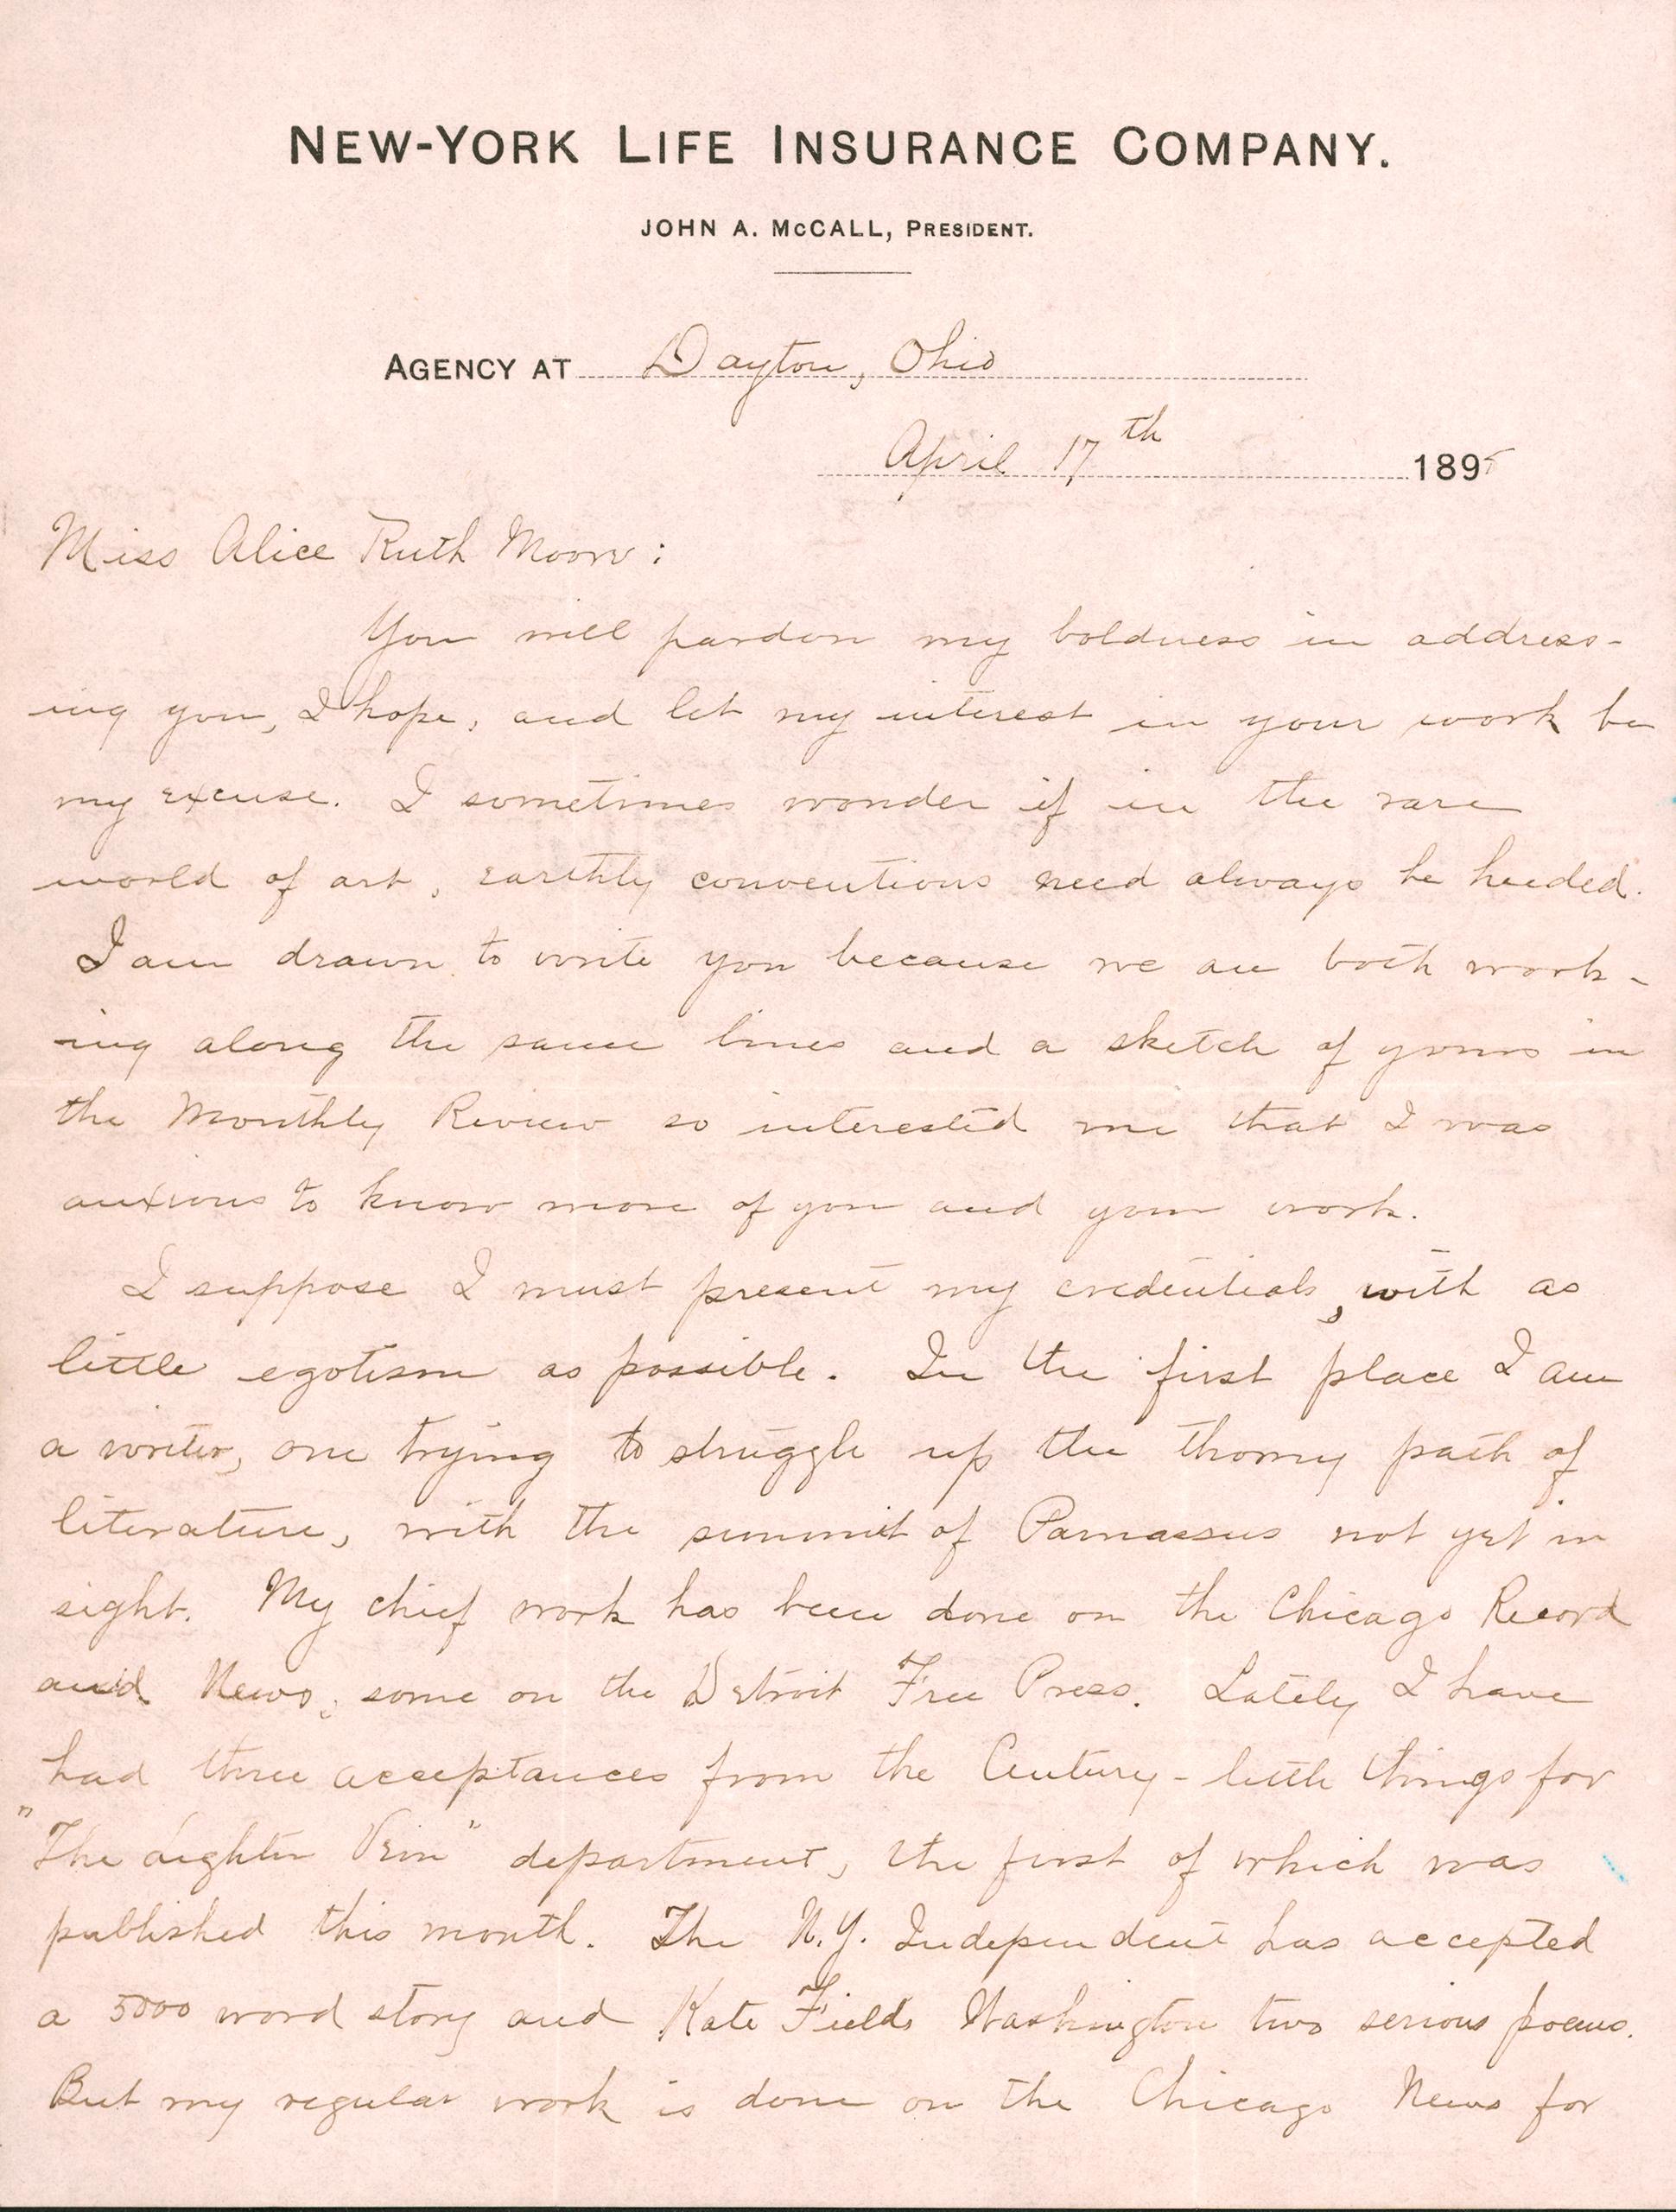 NEW-YORK LIFE INSURANCE COMPANY.
JOHN A. McCALL, PRESIDENT.
AGENCY AT Dayton, Ohio
April 17th 1895
Miss Alice Ruth Moore:
You will pardon my boldness in address-
ing you, I hope, and let my interest in your work be
my excuse. I sometimes wonder if in the rare
world of art, earthly conventions need always be heeded.
I am drawn to write you because we are both work-
ing along the same lines and a sketch of yours in
the Monthly Review so interested me that I was
anxious to know more of you and your work.
I suppose I must present my credentials, with as
little egotism as possible. In the first place I am
a writer, one trying to struggle up the thorny path of
literature, with the summit of Parnassus not yet in
sight. My chief work has been done on the Chicago Record
and News, some on the Detroit Free Press. Lately I have
had three acceptances from the Century - little things for
"The Lighter Vein" department, the first of which was
published this month. The N.Y. Independent has accepted
a 5000 word story and Kate Fields Washington two serious poems.
But my regular work is done on the Chicago News for